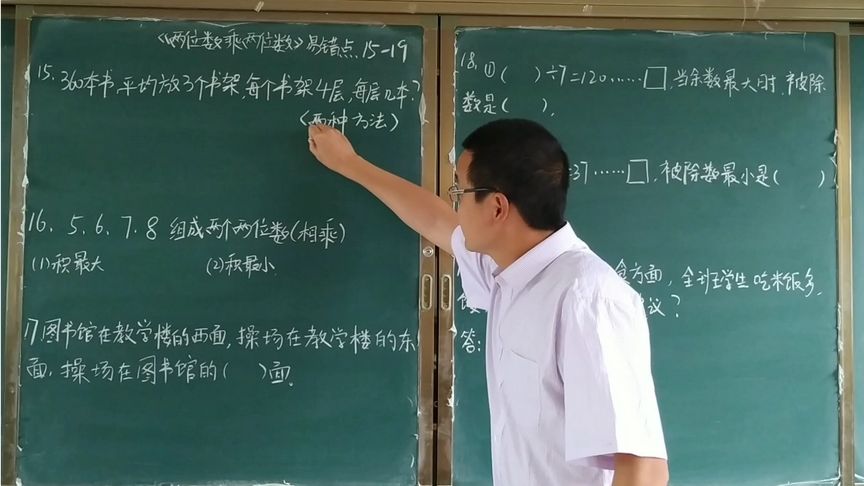 《两位数乘两位数》易错点 15-19
15. 360本书平均放3个书架,每个书架4层,每层几本?
(两种方法)
16. 5. 6. 7. 8 组成两个两位数(相乘)
(1)积最大 (2)积最小
17图书馆在教学楼的西面,操场在教学楼的东
面,操场在图书馆的( )面。
18.①( )÷7=120……□,当余数最大时,被除
数是( )。
=37……□,被除数最小是( )
食方面,全班学生吃米饭多,
议?
答: